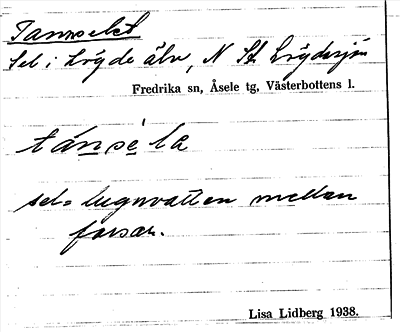 Tannselet
Sel i Lögde älv, N St. Lögdesjön
Fredrika sn, Åsele tg, Västerbottens l.
tánsèla
sel = lugnvatten mellan
forsar.
Lisa Lidberg 1938.